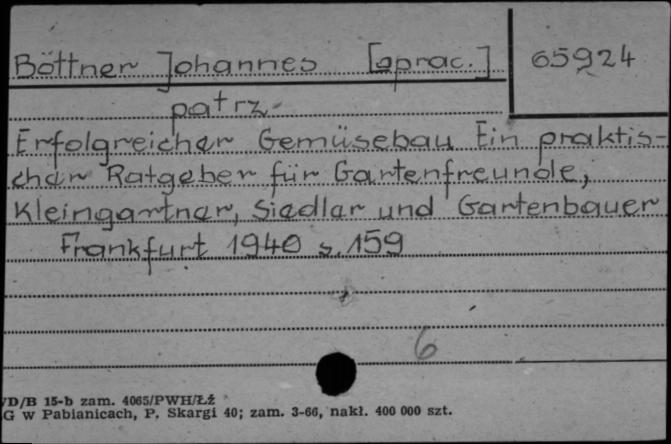 Böttner Johannes [oprac.] 65924
patrz
Erfolgreicher Gemüsebau Ein praktis-
cher Ratgeber für Gartenfreunde,
Kleingartner, Siedler und Gartenbauer
Frankfurt 1940 s. 159
6
VD/B 15-b zam. 4065/PWH/Łź
G w Pabianicach, P. Skargi 40; zam. 3-66, nakł. 400 000 szt.